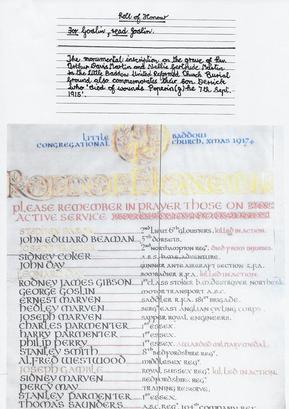 Roll of Honour
For Goslin, read Joslin.
The monumental inscription on the grave of Rev.
Arthur Davis Martin and Nellie Gertrude Martin
in the Little Baddow United Reformed Church Burial
Ground also commemorates their son Derick
who 'died of wounds Poperinghe 7th Sept.
1915'.
LITTLE BADDOW
CONGREGATIONAL CHURCH, XMAS 1917
ROLL OF HONOUR
PLEASE REMEMBER IN PRAYER THOSE ON
ACTIVE SERVICE
2nd LIEUT 6th GLOUSTERS, KILLED IN ACTION.
JOHN EDWARD BEAMAN 5th DORSETS.
2nd NORTHAMPTON REGt. DIED FROM INJURIES
SIDNEY COKER
JOHN DAY GUNNER ANTI AIRCRAFT SECTION R.F.A.
BOMBADIER R.F.A. KILLED IN ACTION.
RODNEY JAMES GIBSON 1st CLASS STOKER
GEORGE GOSLIN MOTOR TRANSPORT A.S.C.
ERNEST MARVEN SADDLER R.F.A. BRIGADE.
HEDLEY MARVEN EAST ANGLIAN CYCLING CORPS
JOSEPH MARVEN SAPPER ROYAL ENGINEERS.
CHARLES PARMENTER 1st ESSEX.
HARRY PARMENTER 1st ESSEX.
PHILIP PERRY ESSEX. AWARDED MILITARY MEDAL
STANLEY SMITH BEDFORDSHIRE REGt.
ALFRED WESTWOOD MIDDLESEX REGt.
JOSEPH GAMBLE ROYAL SUSSEX REGt KILLED IN ACTION
SIDNEY MARVEN BEDFORDSHIRE REGt.
PERCY MAY TRAINING RESERVE.
STANLEY PARMENTER 1st ESSEX.
THOMAS SAUNDERS